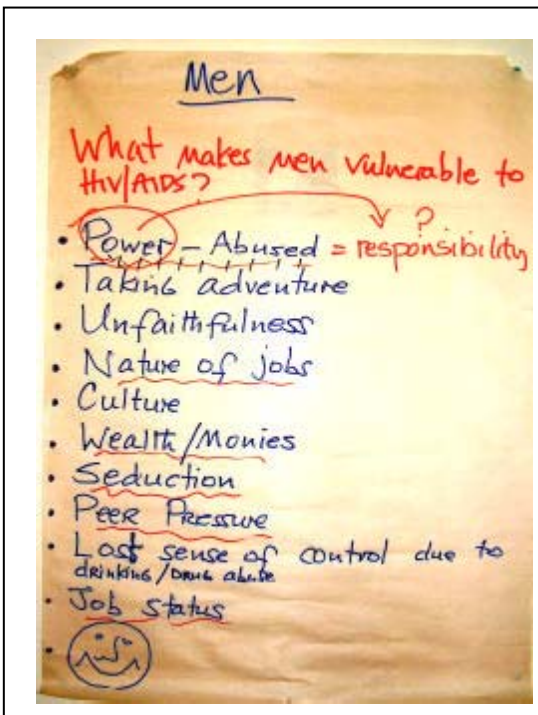 Men
What makes men vulnerable to
HIV/AIDS?
?
• Power – Abused = responsibility
• Taking adventure
• Unfaithfulness
• Nature of jobs
• Culture
• Wealth/Monies
• Seduction
• Peer Pressure
• Lost sense of control due to
drinking/Drug abuse
• Job status
•